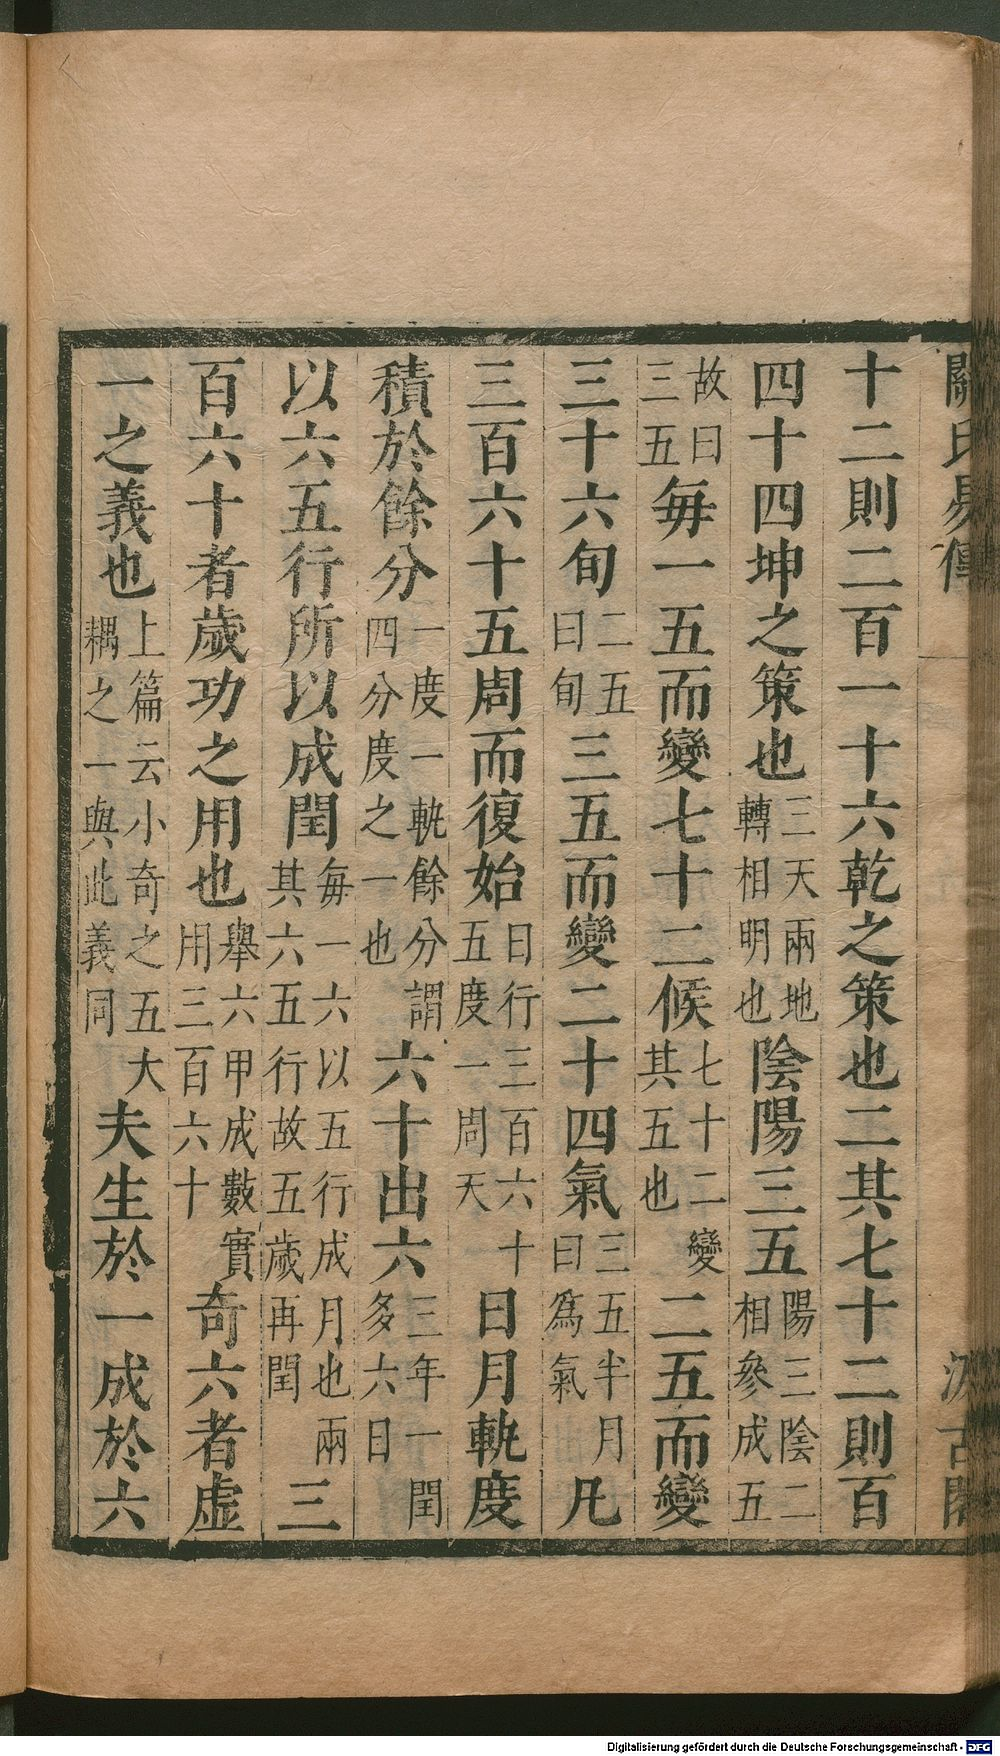 關氏易傳
汲古閣
十二則二百一十六乾之策也二其七十二則百
四十四坤之策也三天兩地轉相明也陰陽三五陽三陰二相參成五
故曰三五每一五而變七十二候七十二變其五也二五而變
三十六旬二五曰旬三五而變二十四氣三五半月曰爲氣凡
三百六十五周而復始日行三百六十五度一周天日月軌度
積於餘分一度一軌餘分謂四分度之一也六十出六三年一閏多六日
以六五行所以成閏每一六以五行成月也兩其六五行故五歲再閏三
百六十者歲功之用也舉六甲成數實用三百六十奇六者虛
一之義也上篇云小奇之五大耦之一與此義同夫生於一成於六
Digitalisierung gefördert durch die Deutsche Forschungsgemeinschaft - DFG